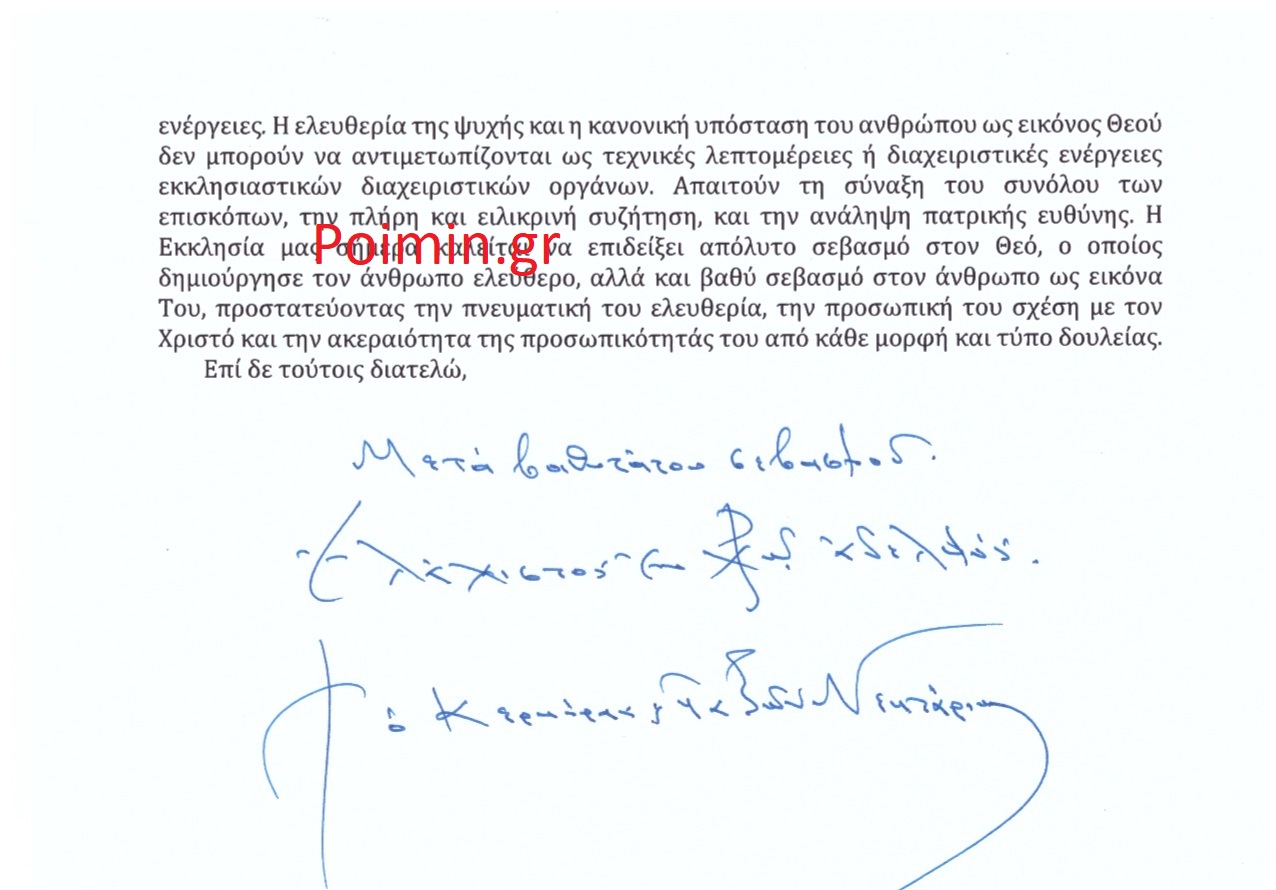 ενέργειες. Η ελευθερία της ψυχής και η κανονική υπόσταση του ανθρώπου ως εικόνος Θεού
δεν μπορούν να αντιμετωπίζονται ως τεχνικές λεπτομέρειες ή διαχειριστικές ενέργειες
εκκλησιαστικών διαχειριστικών οργάνων. Απαιτούν τη σύναξη του συνόλου των
επισκόπων, την πλήρη και ειλικρινή συζήτηση, και την ανάληψη πατρικής ευθύνης. Η
Εκκλησία μας σήμερα καλείται να επιδείξει απόλυτο σεβασμό στον Θεό, ο οποίος
Poimin.gr
δημιούργησε τον άνθρωπο ελεύθερο, αλλά και βαθύ σεβασμό στον άνθρωπο ως εικόνα
Του, προστατεύοντας την πνευματική του ελευθερία, την προσωπική του σχέση με τον
Χριστό και την ακεραιότητα της προσωπικότητάς του από κάθε μορφή και τύπο δουλείας.
Επί δε τούτοις διατελώ,
Μετά βαθυτάτου σεβασμού.
Ἐλάχιστος ἐν Χῷ ἀδελφός.
ὁ Κερκύρας Παξῶν Νεκτάριος